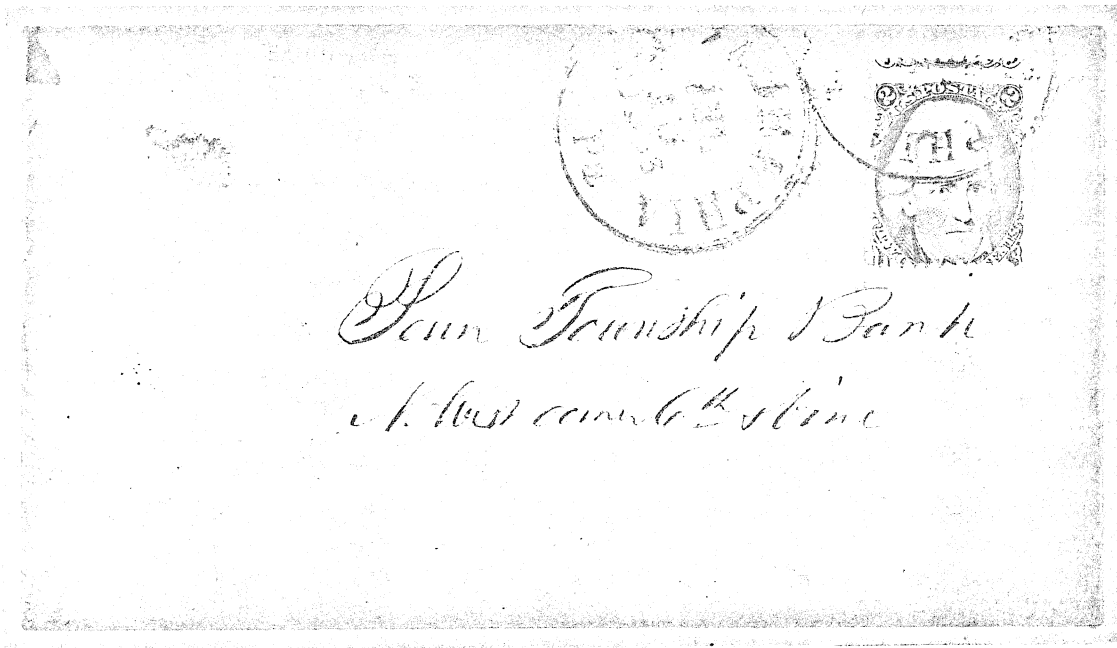 PA
2 2
Penn Township Bank
N. West corner 6th & Vine